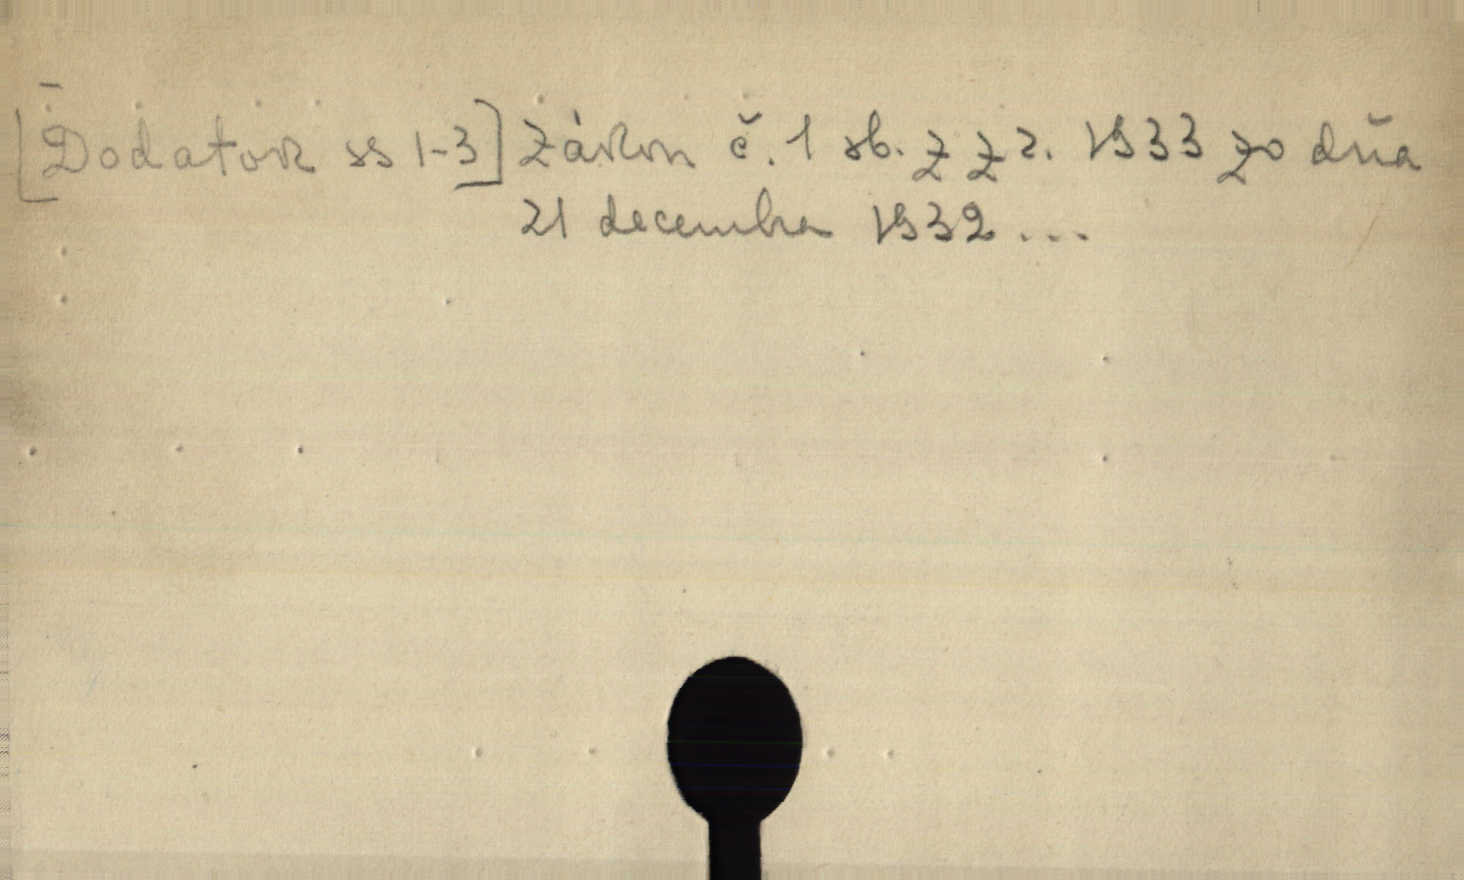 [Dodatok ss 1-3] Zákon č. 1 sb. z z r. 1933 zo dňa
21 decembra 1932 ...